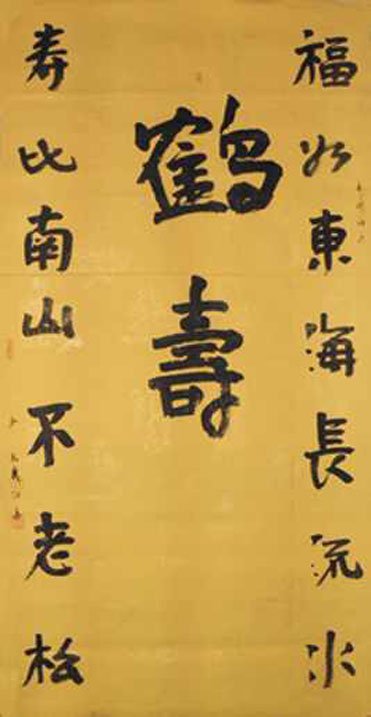 福如東海長流水
鶴壽
寿比南山不老松